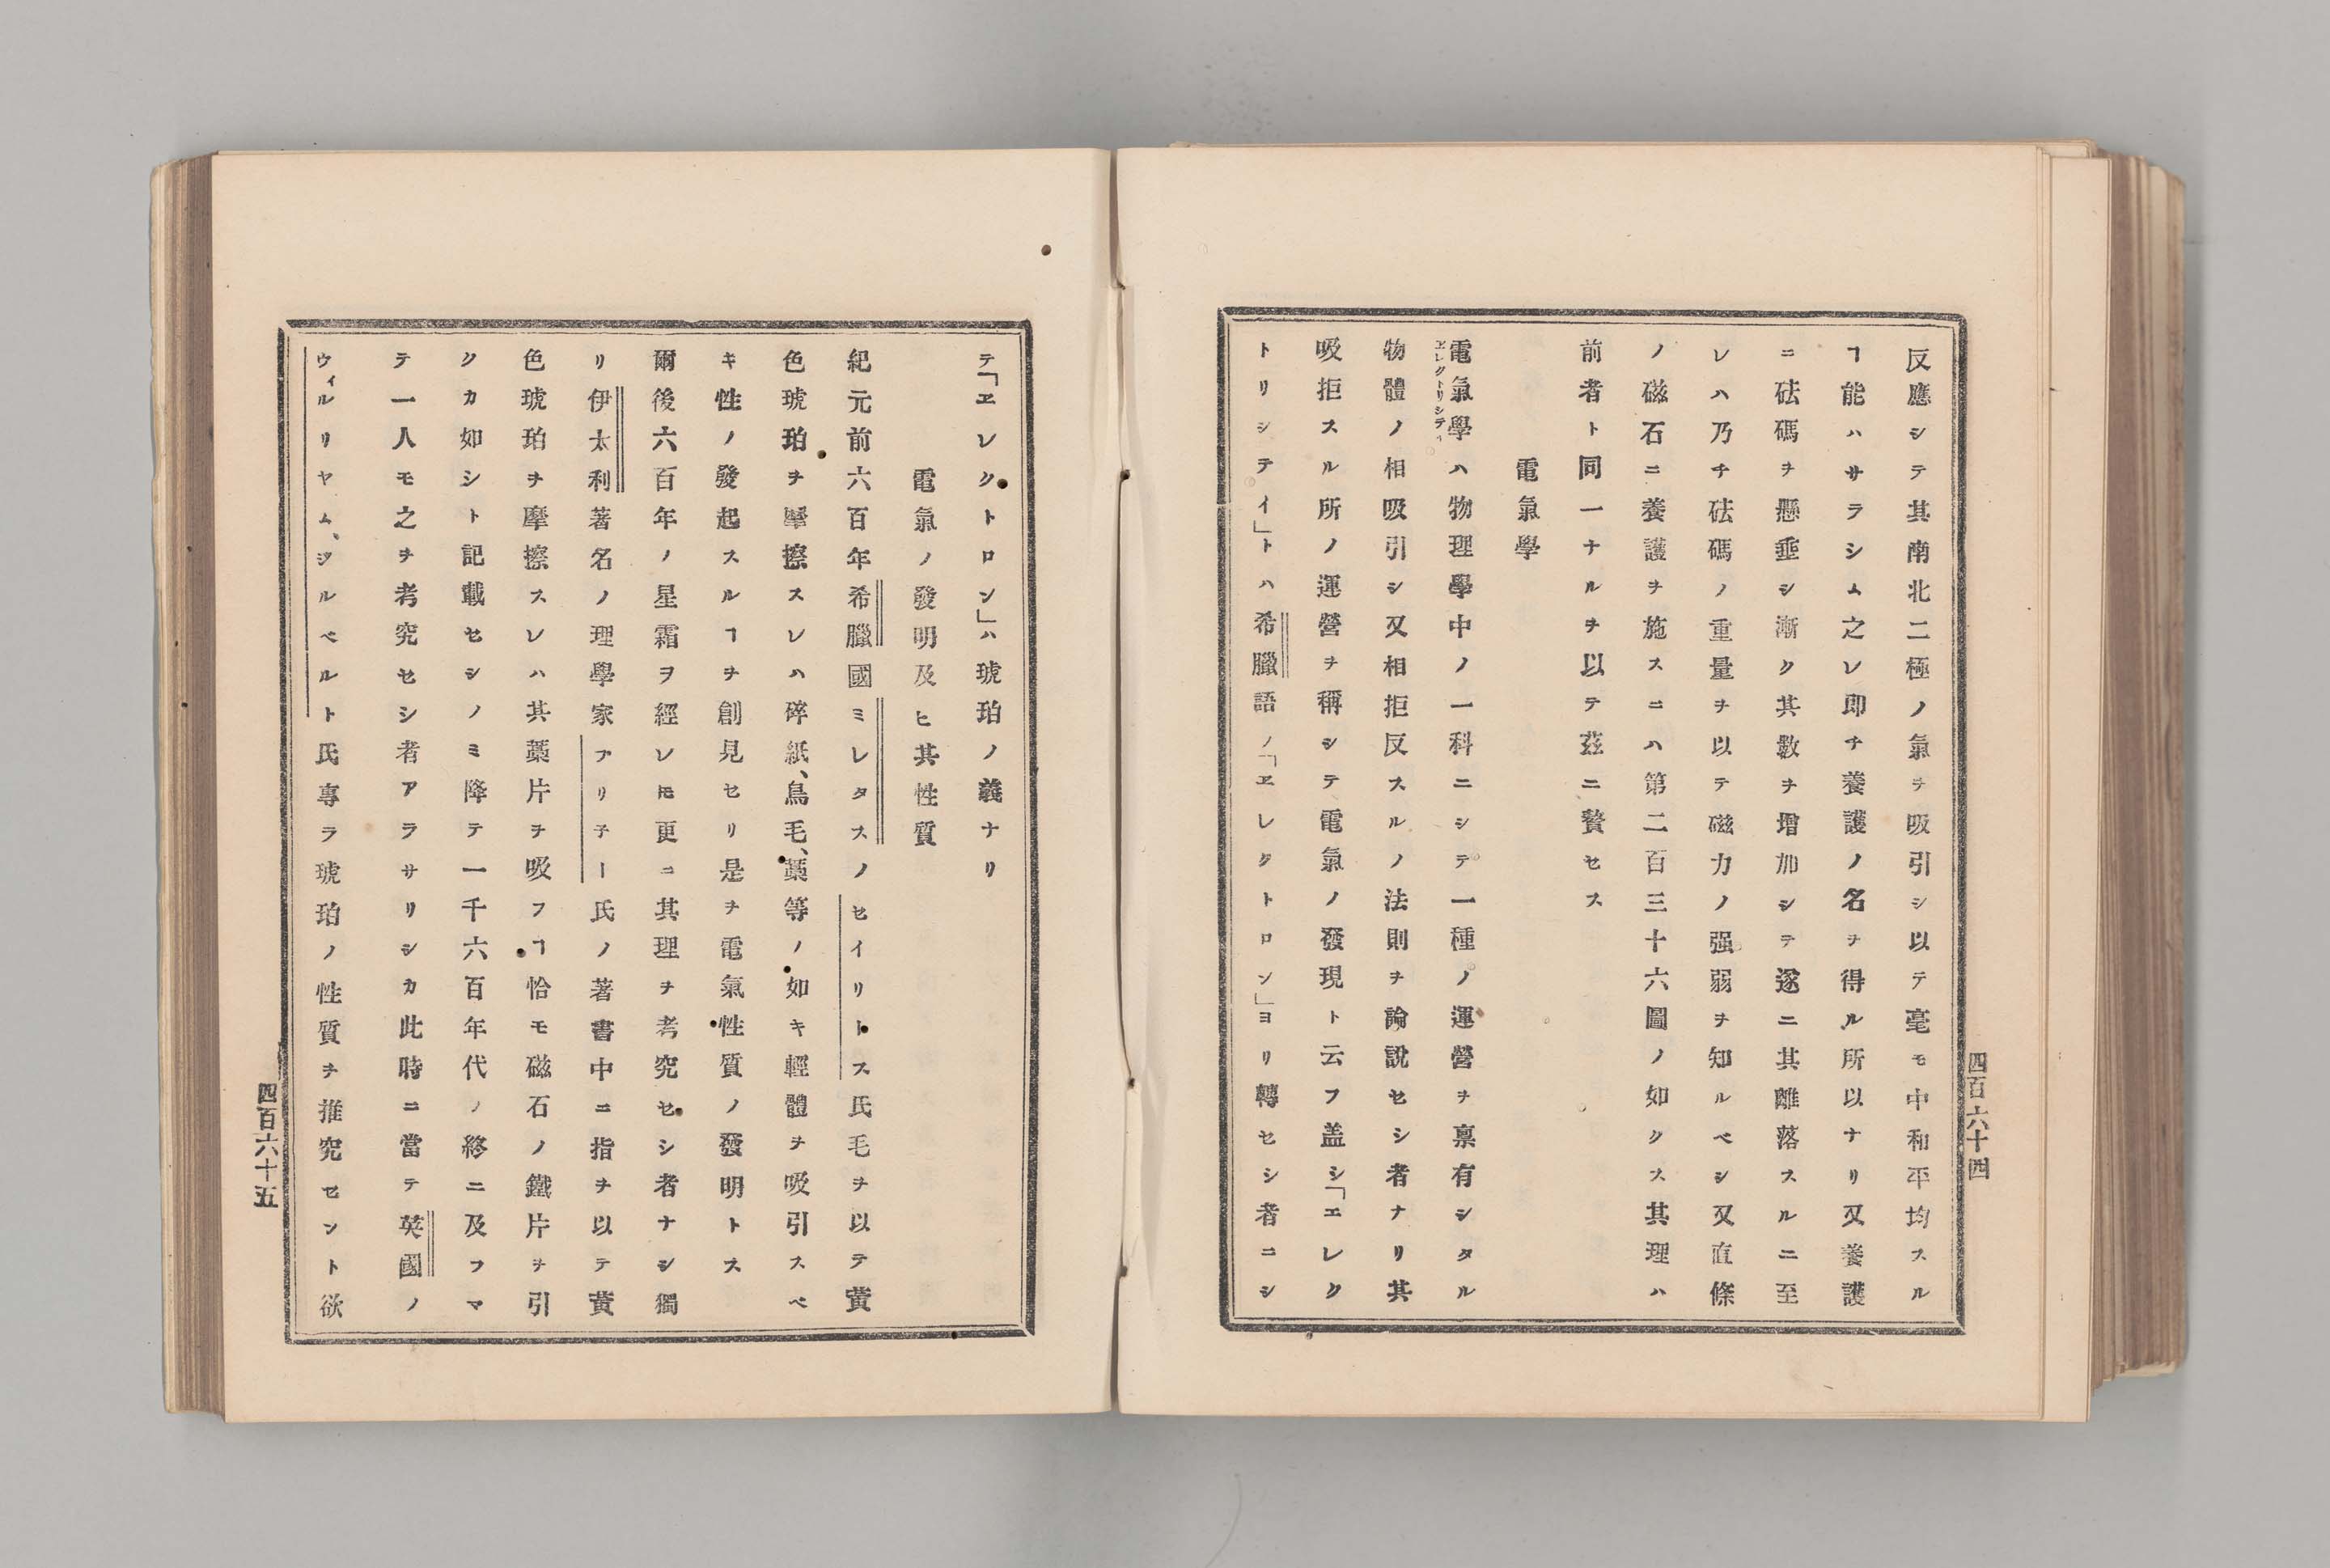 反應シテ其南北二極ノ氣ヲ吸引シ以テ毫モ中和平均スル
ヿ能ハサラシム之レ即チ養護ノ名ヲ得ル所以ナリ又養護
ニ砝碼ヲ懸垂シ漸ク其數ヲ增加シテ遂ニ其離落スルニ至
レハ乃チ砝碼ノ重量ヲ以テ磁力ノ强弱ヲ知ルベシ又直條
ノ磁石ニ養護ヲ施スニハ第二百三十六圖ノ如クス其理ハ
前者ト同一ナルヲ以テ茲ニ贅セス
電氣學
電氣學ハ物理學中ノ一科ニシテ一種ノ運營ヲ禀有シタル
ヱレクトリシティ
物體ノ相吸引シ又相拒反スルノ法則ヲ論說セシ者ナリ其
吸拒スル所ノ運營ヲ稱シテ電氣ノ發現ト云フ盖シ「エレク
トリシテイ」トハ希臘語ノ「ヱレクトロン」ヨリ轉セシ者ニシ
四百六十四
テ「ヱレクトロン」ハ琥珀ノ義ナリ
電氣ノ發明及ヒ其性質
紀元前六百年希臘國ミレタスノセイリトス氏毛ヲ以テ黃
色琥珀ヲ摩擦スレハ碎紙、鳥毛、藁等ノ如キ輕體ヲ吸引スベ
キ性ノ發起スルヿヲ創見セリ是ヲ電氣性質ノ發明トス
爾後六百年ノ星霜ヲ經レ𪜈更ニ其理ヲ考究セシ者ナシ獨
リ伊太利著名ノ理學家アリ子ー氏ノ著書中ニ指ヲ以テ黃
色琥珀ヲ摩擦スレハ其藁片ヲ吸フヿ恰モ磁石ノ鐵片ヲ引
クカ如シト記載セシノミ降テ一千六百年代ノ終ニ及フマ
テ一人モ之ヲ考究セシ者アラサリシカ此時ニ當テ英國ノ
ウィルリヤム、ジルベルト氏專ラ琥珀ノ性質ヲ推究セント欲
四百六十五